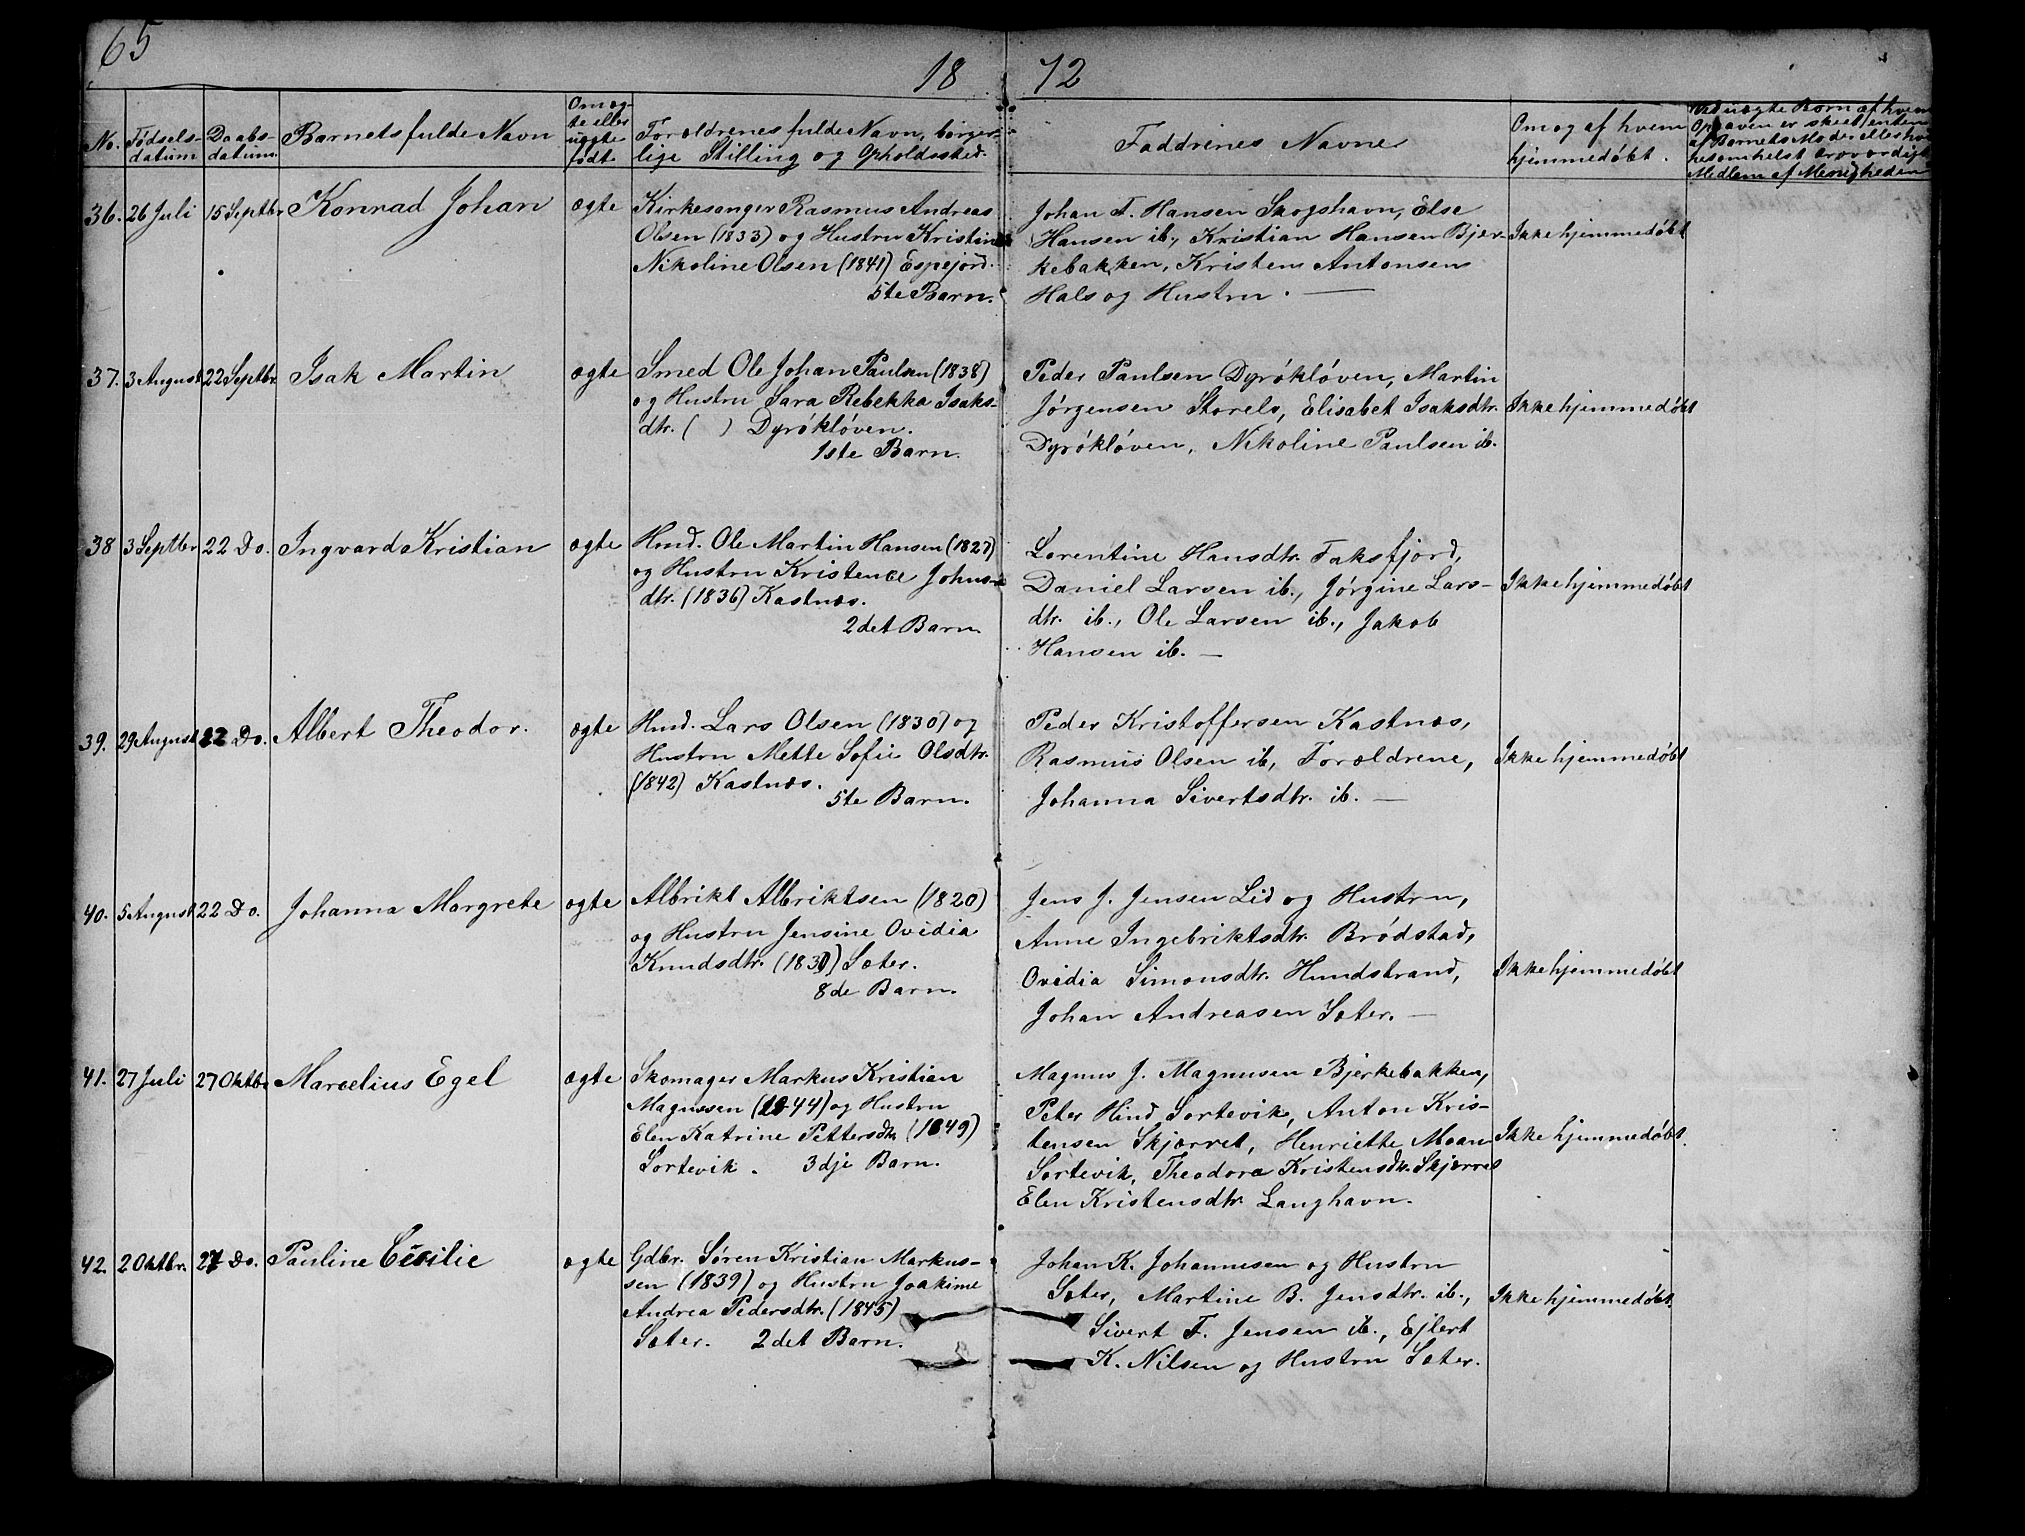 65
18 72
No.
Födsels-
datum
Daabs-
datum
Barnets fulde Navn
Om æg-
te eller
uægte
födt.
Forældrenes fulde Navn, borger-
lige Stilling og Opholdssted.
Faddrenes Navne
Om og af hvem
hjemmedöbt.
Ved uægte Børn af hvem
Opgaven er skeet, enten
af Barnets Moder eller hvil-
kesomhelst troværdigt
Medlem af Menigheden
36. 26 Juli 15 Septbr Konrad Johan ægte
Kirkesanger Rasmus Andreas
Olsen (1833) og Hustru Kristine
Nikoline Olsen (1841) Espejord.
5te Barn.
Johan T. Hansen Skogshavn, Else
Hansen ib., Kristian Hansen Bjer-
kebakken, Kristens Antonsens
Hals og Hustru. —
Ikke hjemmedöbt
37. 3 August 22 Septbr. Isak Martin ægte
Smed Ole Johan Paulsen (1838)
og Hustru Sara Rebekka Isaks-
dtr. ( ) Dyröklöven.
1ste Barn.
Peder Paulsen Dyröklöven, Martin
Jörgensen Storelv, Elisabet Isaksdtr.
Dyröklöven, Nikoline Paulsen ib.
Ikke hjemmedöbt
38 3 Septbr 22 Do. Ingvard Kristian ægte
Hmd. Ole Martin Hansen (1827)
og Hustru Kristence Johns-
dtr. (1836) Kastnæs.
2det Barn
Lorentine Hansdtr. Faksfjord,
Daniel Larsen ib., Jörgine Lars-
dtr. ib., Ole Larsen ib., Jakob
Hansen ib. —
Ikke hjemmedöbt
39. 29 August 22 Do. Albert Theodor. ægte
Hmd. Lars Olsen (1830) og
Hustru Mette Sofie Olsdtr.
(1842) Kastnæs.
5te Barn.
Peder Kristoffersen Kastnæs,
Rasmus Olsen ib, Forældrene,
Johanna Sivertsdtr. ib. —
Ikke hjemmedöbt
40. 5 August 22 Do. Johanna Margrete ægte
Albrikt Albriktsen (1820)
og Hustru Jensine Ovidia
Knudsdtr. (1830) Sæter.
8de Barn.
Jens J. Jensen Lid og Hustru,
Anne Ingebriktsdtr. Brödstad,
Ovidia Simonsdtr. Hundstrand,
Johan Andreasen Sæter. —
Ikke hjemmedöbt
41. 27 Juli 27 Oktbr Marcelius Egel ægte
Skomager Markus Kristian
Magussen (1844) og Hustru
Elen Katrine Pettersdtr. (1849)
Sortevik. 3dje Barn.
Magnus J. Magnusen Bjerkebakken,
Peter Hind Sortevik, Anton Kris-
tensen Skjærret, Henriette Moan
Sortevik, Theodora Kristensdtr. Skjærret
Elen Kristensdtr. Langhavn.
Ikke hjemmedöbt.
42. 2 Oktbr. 27 Do. Pauline Cecilie ægte
Gdbr. Sören Kristian Markus-
sen (1839) og Hustru Joakime
Andrea Pedersdtr. (1845)
Sæter. 2det Barn.
Johan K. Johannesen og Hustru
Sæter, Martine B. Jensdtr. ib.,
Sivert F. Jensen ib., Ejlert
K. Nilsen og Hustru Sæter.
Ikke hjemmedöbt.